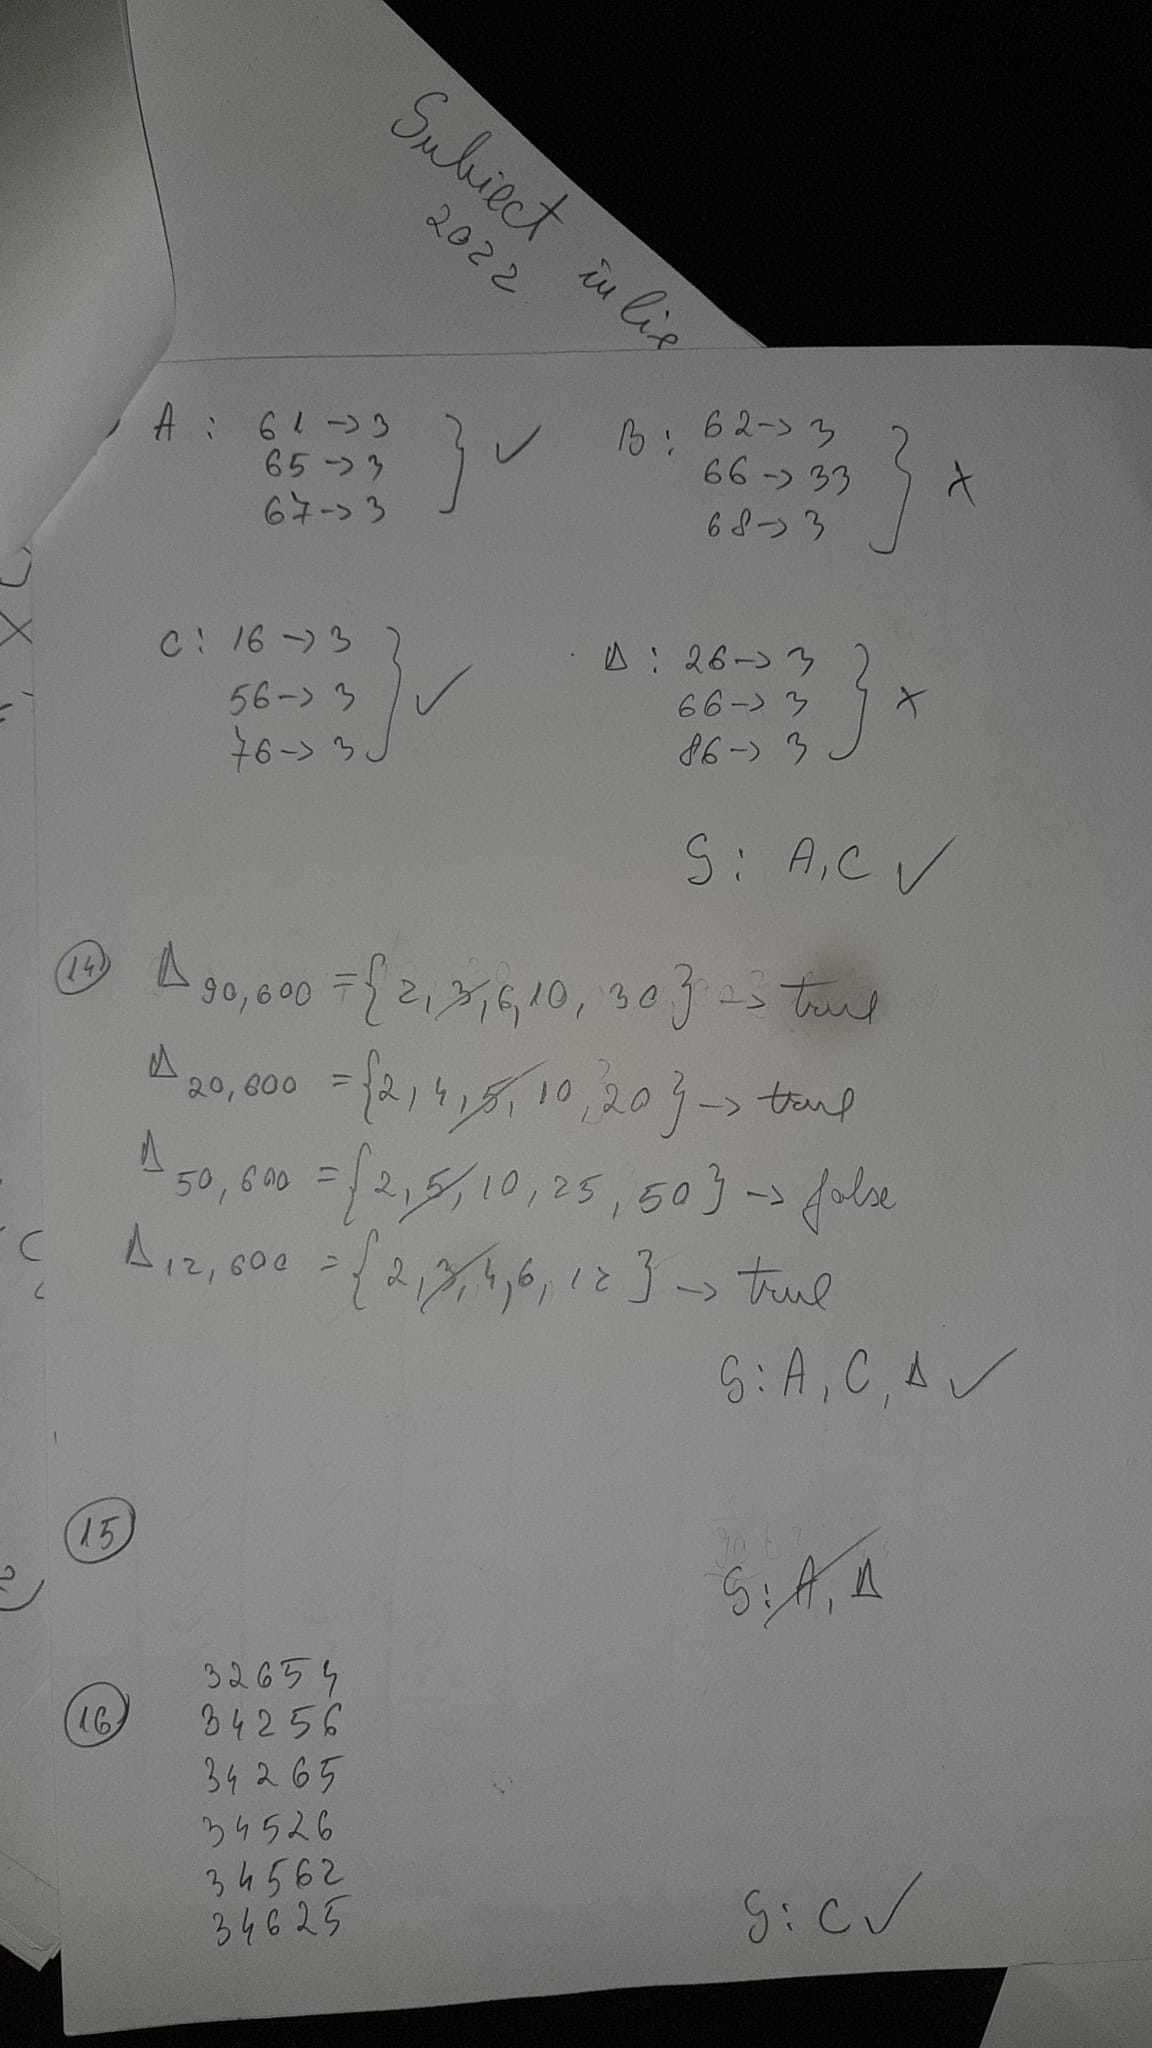 Subiect în lic
2022
A : 61 -> 3
65 -> 3
67 -> 3 } ✓
B : 62 -> 3
66 -> 33
68 -> 3 } x
C : 16 -> 3
56 -> 3
76 -> 3 } ✓
Δ : 26 -> 3
66 -> 3
86 -> 3 } x
S : A, C ✓
14 Δ 90,600 = {2, 3, 6, 10, 30} -> true
Δ 20,600 = {2, 4, 5, 10, 20} -> true
Δ 50,600 = {2, 5, 10, 25, 50} -> false
Δ 12,600 = {2, 3, 4, 6, 12} -> true
S : A, C, Δ ✓
15
S : A, Δ
32654
16 34256
34265
34526
34562
34625
S : C ✓